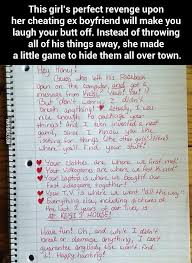 This girl's perfect revenge upon
her cheating ex boyfriend will make you
laugh your butt off. Instead of throwing
all of his things away, she made
a little game to hide them all over town.
Hey Honey!
Guess who left his Facebook
open on the computer, and got a
message from
But don't worry! I didn't
break anything! Actually I was
nice enough to package your
things! And I even invented a neat
game, since I know you like
looking for things (like other girls) when
Your clothes are where we first met!
Your videogames are where we first kissed!
Your laptop is where we bought our
first videogame together!
Your T.V. is where we went "all the way"!
Everything else including pictures of
the last 5 years of our lives is
AT 'S HOUSE!
Have fun! Oh, and while I didn't
break or damage anything, I can't
guarantee anybody else didn't find
it! Happy hunting!